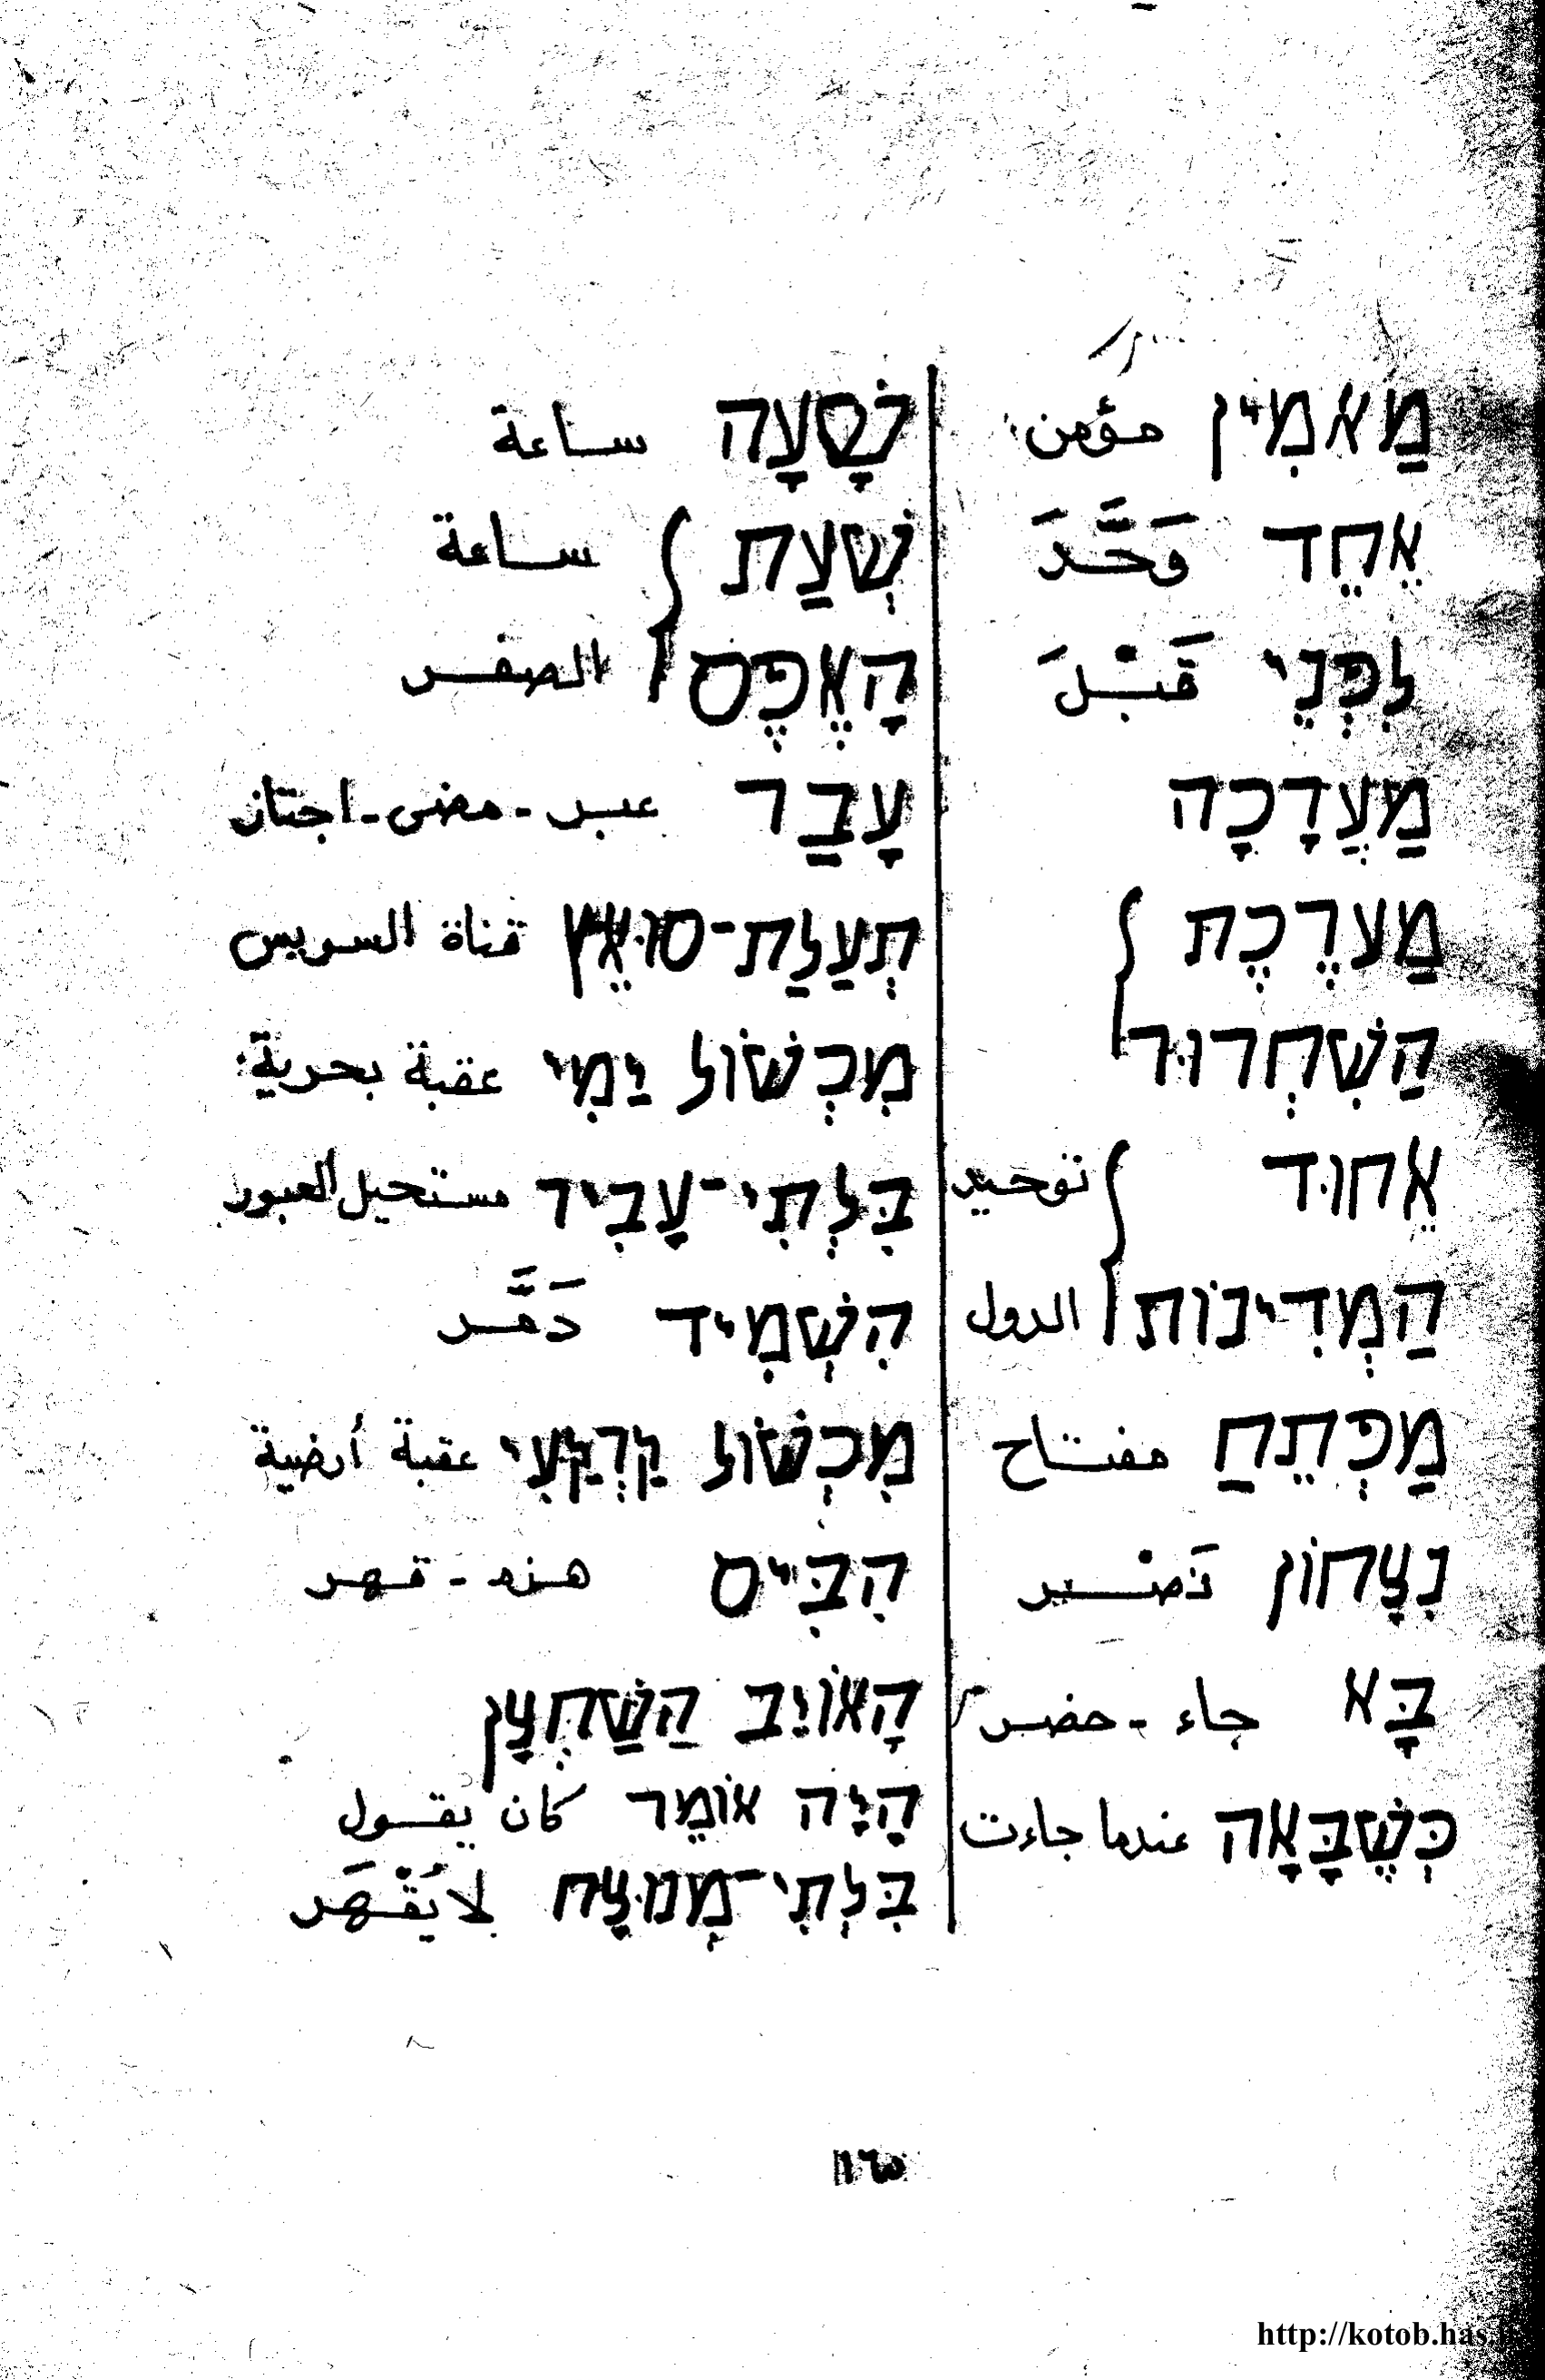 מַאֲמִין مؤمن
אִחֵד وَحَّدَ
לִפְנֵי قَبْلَ
מַעֲרָכָה
מַעֲרֶכֶת
הַשִׁחְרוּר
אִחוּד توحيد
הַמְדִינוֹת الدول
מַפְתֵּחַ مفتاح
נִצָחוֹן نَصْر
בָּא جاء - حضر
כְּשֶׁבָּאָה عندما جاءت
שָׁעָה ساعة
שְׁעַת ساعة
הָאֶפֶס الصفر
עָבַר عبر - مضى - اجتاز
תְעַלַת-סוּאֵץ قناة السويس
מִכְשׁוֹל יַמִי عقبة بحرية
בִּלְתִי-עָבִיר مستحيل العبور
הִשְׁמִיד دَمَّر
מִכְשׁוֹל קַרְקַעִי عقبة أرضية
הִבִּיס هزم - قهر
הָאוֹיֵב הַשַׁחְצָן
הָיָה אוֹמֵר كان يقول
בִּלְתִי-מְנוּצָח لا يُقْهَر
http://kotob.has.